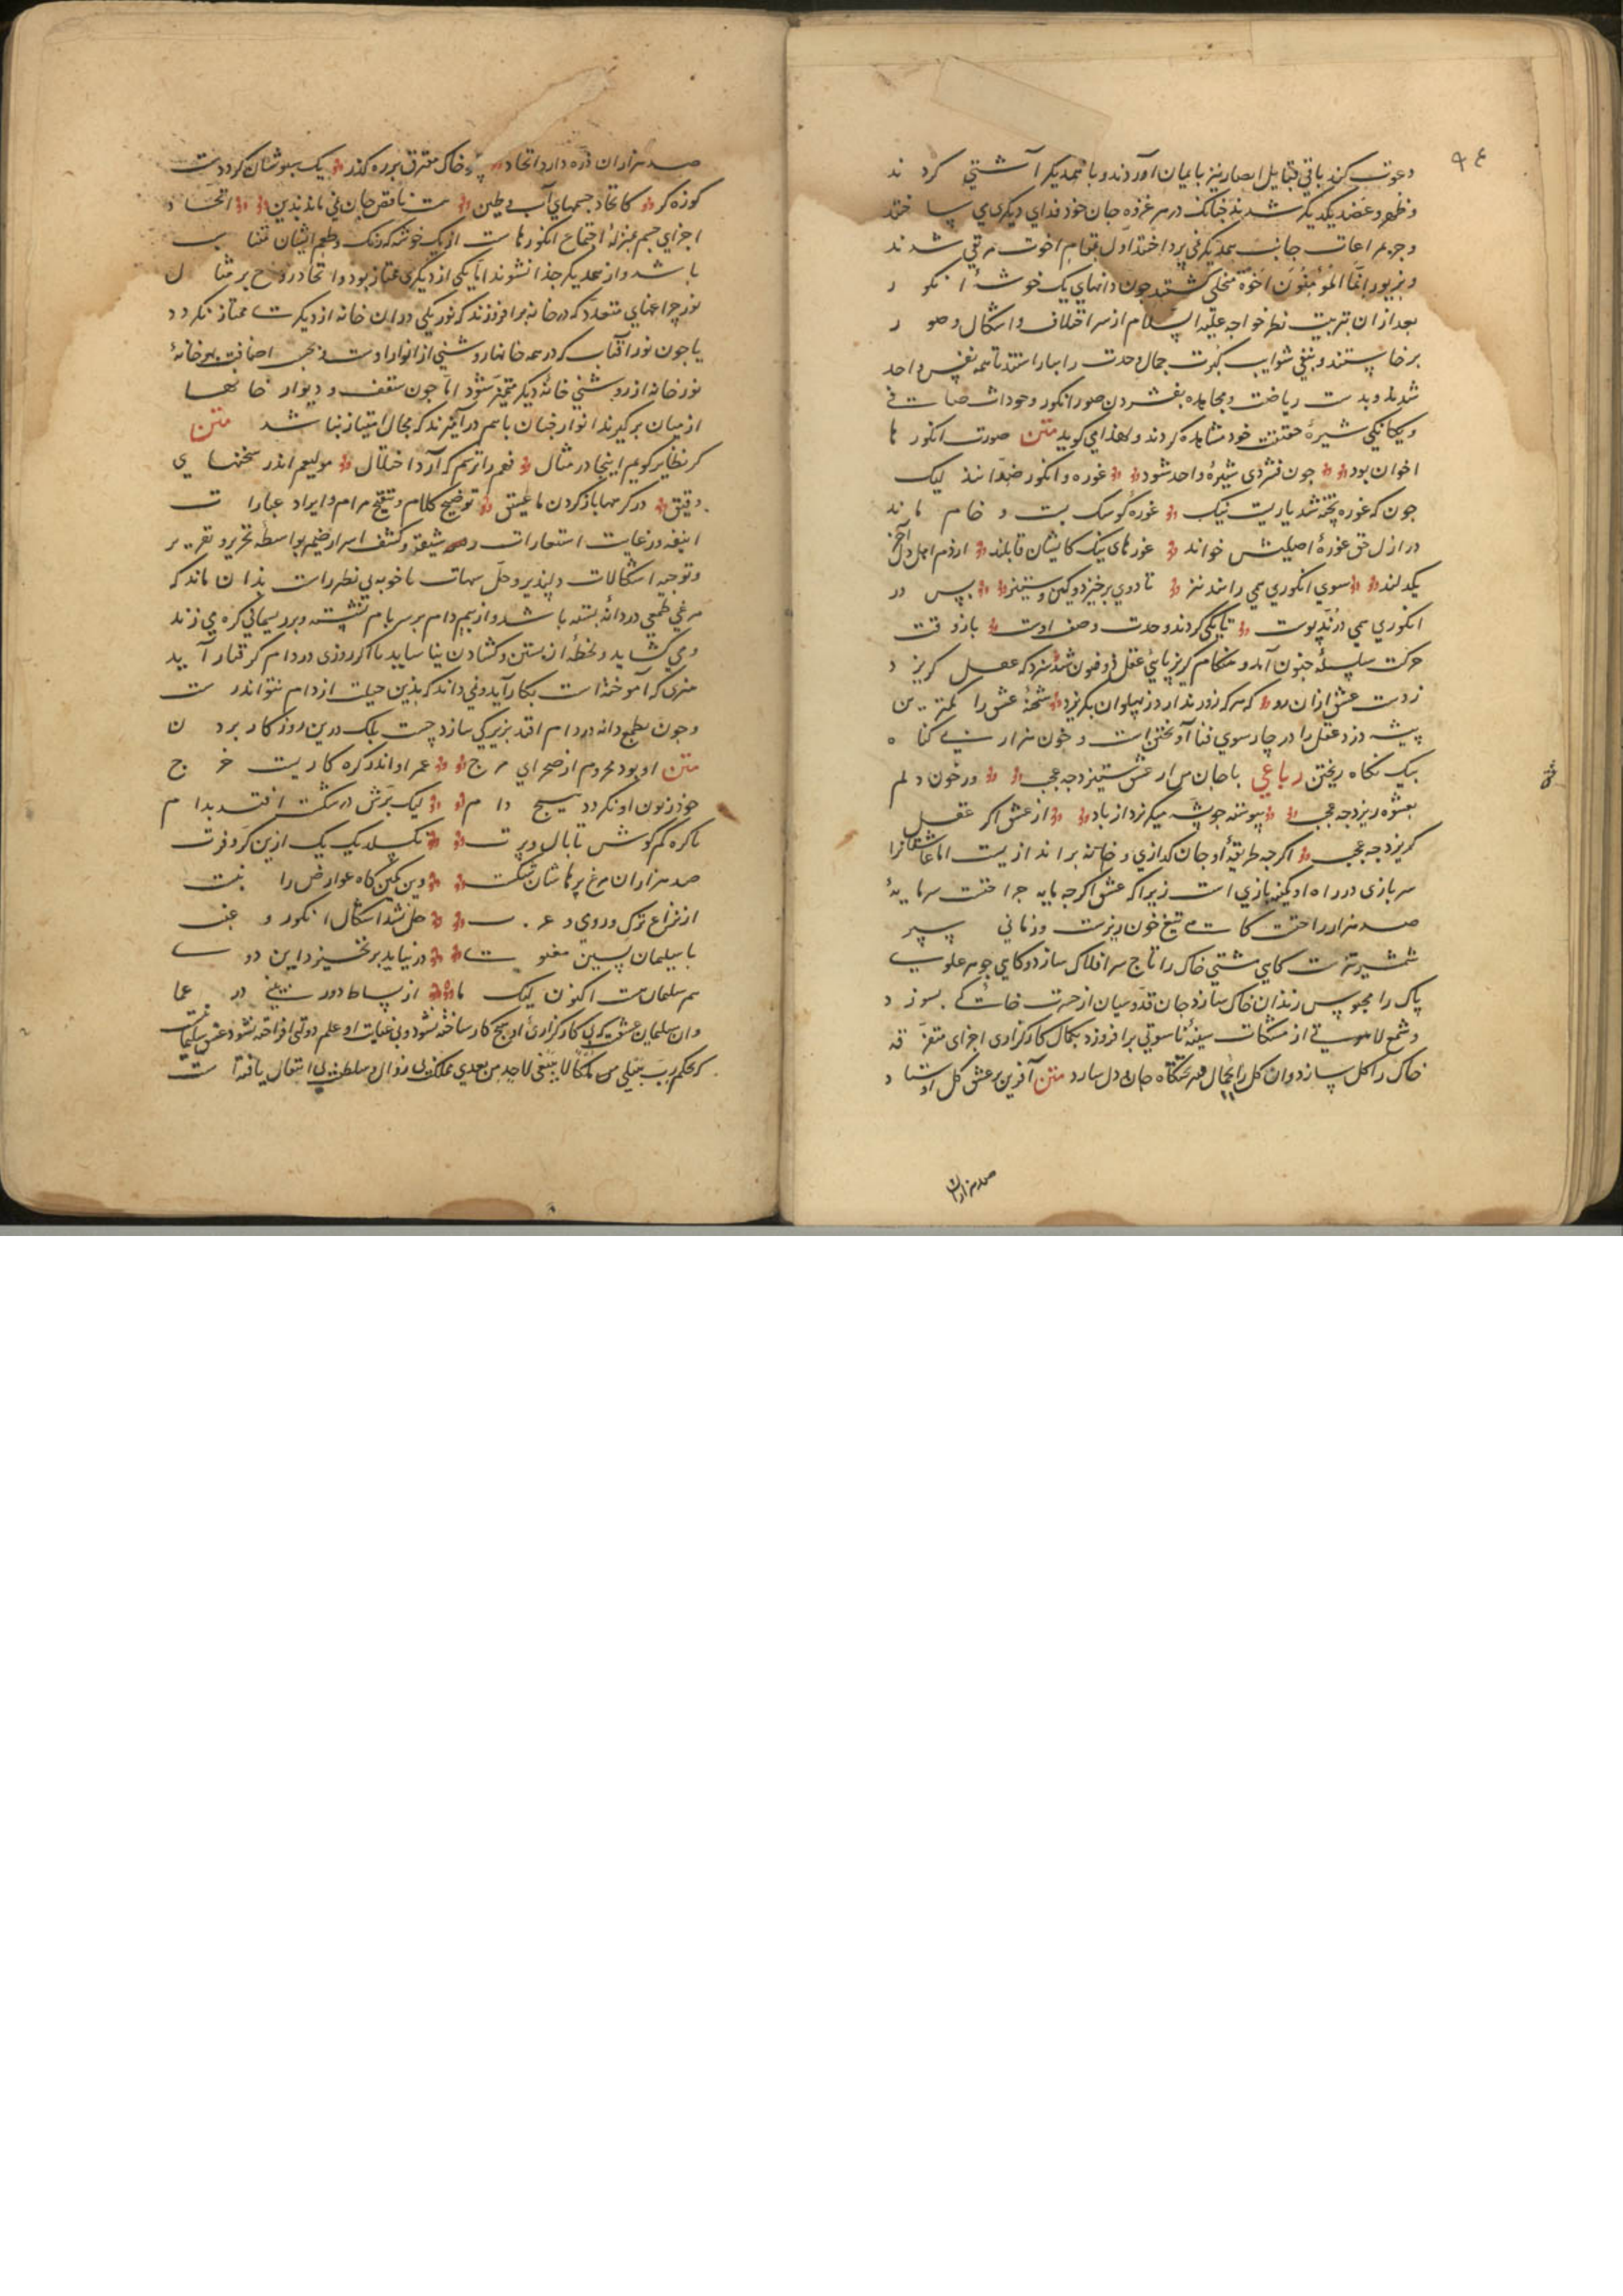 ۹۴
دعوت کند باقی قبایل انصار نیز بایمان آوردند و با همدیکر آشتی کردند
و ظهر و عضد یکدیکر شدند چنانک در هر غزوه جان خود فدای دیکری می ساختند
و جز مراعات جانب همدیکر نمی پرداختند اول بمقام اخوت مرتقی شدند
و بزیور انما المؤمنون اخوة متحلی کشتند چون دانهای یک خوشهٔ انکور
بعد از ان بتربیت نظر خواجه علیه السلام از سر اختلاف و اشکال و صور
برخاستند و بنفی شوایب کثرت جمال وحدت را بیاراستند تا همه نفس واحد
شدند و بدست ریاضت و مجاهده بفشردن صور انکور وجودات صافی
و یکانکی شیرهٔ حقیقت خود مشاهده کردند و لهذا می کوید متن صورت انکورها
اخوان بود چون فشردی شیرهٔ واحد شود غوره و انکور ضدانند لیک
چون که غوره پخته شد یاریست نیک غورهٔ کو سنک بست و خام ماند
در ازل حق غورهٔ اصلیش خواند غورهای نیک کایشان قابلند از دم اهل دل آخر
یکدلند سوی انکوری همی رانند تیز تا دوی برخیزد و کین و ستیز پس در
انکوری همی درند پوست تا یکی کردند وحدت وصف اوست باز وقت
حرکت سلسلهٔ جنون آمد و هنکام کریز پای عقل ذوفنون شد سزد که عقل کریزد
زدست عشق ازان رو که هر که زور ندارد ز پهلوان بکریزد شحنهٔ عشق را کمترین
پیشه دزد عقل را در چارسوی فنا آویختن است و خون هزار بی کناه
بیک نکاه ریختن رباعی با جان من ار عشق ستیزد چه عجب ور خون دلم
بعشوه ریزد چه عجب پیوسته چو پشه میکریزد از باد از عشق اکر عقل
کریزد چه عجب اکرچه طریقهٔ او جان کدازی و خانه براندازیست اما عاشقانرا
سربازی در راه او کمینه بازی است زیرا که عشق اکرچه مایه جراحتست سرمایهٔ
صد هزار راحت کاست تیغ خون ریزست و زمانی سپر
شمشیر تیزست کاهی مشتی خاک را تاج سر افلاک سازد و کاهی جوهر علوی
پاک را محبوس زندان خاک سازد جان قدوسیان از حسرت خاکی بسوزد
و شمع لاهوتی از مشکات سینهٔ ناسوتی برافروزد بکمال کارکزاری اجزای متفرقه
خاک را کل سازد و ان کل را بجمال هنر تختکاه جان و دل سازد متن آفرین بر عشق کل اوستاد
صد هزاران
صد هزاران ذره را داد اتحاد همچو خاک مفترق بر ره کذر یک سبوشان کرد دست
کوزه کر کاتحاد جسمهای آب و طین هست ناقص جان نمی ماند بدین اتحاد
اجزای جسم بمنزلهٔ اجتماع انکورهاست از یک خوشه که رنک و طعم ایشان متناسب
باشد و از همدیکر جدا نشوند اما یکی از دیکری ممتاز بود و اتحاد روح بر مثال
نور چراغهای متعدد که در خانه برافروزند که نور یکی در ان خانه از دیکرست ممتاز نکردد
یا چون نور آفتاب که در همه خانها روشنی از انوار اوست و بحسب اضافت بهر خانهٔ
نور خانه از روشنی خانهٔ دیکر متمیز شود اما چون سقف و دیوار خانها
از میان برکیرند انوار چنان با هم درآمیزند که مجال امتیاز نباشد متن
کر نظایر کویم اینجا در مثال فهم را ترسم که آرد اختلال مولعیم اندر سخنهای
دقیق در کرهها باز کردن ما عشیق توضیح کلام و تنقیح مرام و ایراد عبارات
انیقه و رعایت استعارات رشیقه و کشف اسرار ضمیر بواسطهٔ تحریر و تقریر
و توجیه اشکالات دلپذیر و حل شبهات ما خوبه بی نظیرست بدان ماند که
مرغی بطمع در دانه بسته باشد و از بیم دام بر سر بام نشسته و بر ریسمانی کره می زند
و می کشاید و لحظهٔ از بستن و کشادن نیاساید تا اکر روزی در دام کرفتار آید
هنری که آموخته است بکار آید و نمی داند که بدین حیلت از دام نتواند رست
و چون بطمع دانه در دام افتد بزیرکی سازد چست بلک درین روزکار بردن
متن او بود محروم از صحرای مرج عمر او اندر کره کاریست خرج
خود زبون او نکردد هیچ دام لیک پرش در شکست افتد بدام
با کره کم کوش تا بال و پرت نکسلد یک یک ازین کر و فرت
صد هزاران مرغ پرهاشان شکست وین کمین کاه عوارض را نبست
از نزاع ترک و رومی و عرب حل نشد اشکال انکور و عنب
تا سلیمان لسین معنوی در نیاید برنخیزد این دوی
هم سلیمان هست اکنون لیک ما از نشاط دور بینی در عما
و ان سلیمان عشقست که بی کارکزاری او هیچ کار ساخته نشود و بی عنایت او علم دولتی افراخته نشود عشق سلیمانست
که بحکم رب هب لی ملکا لا ینبغی لاحد من بعدی مملکت بی زوال و سلطنت بی انتقال یافته است